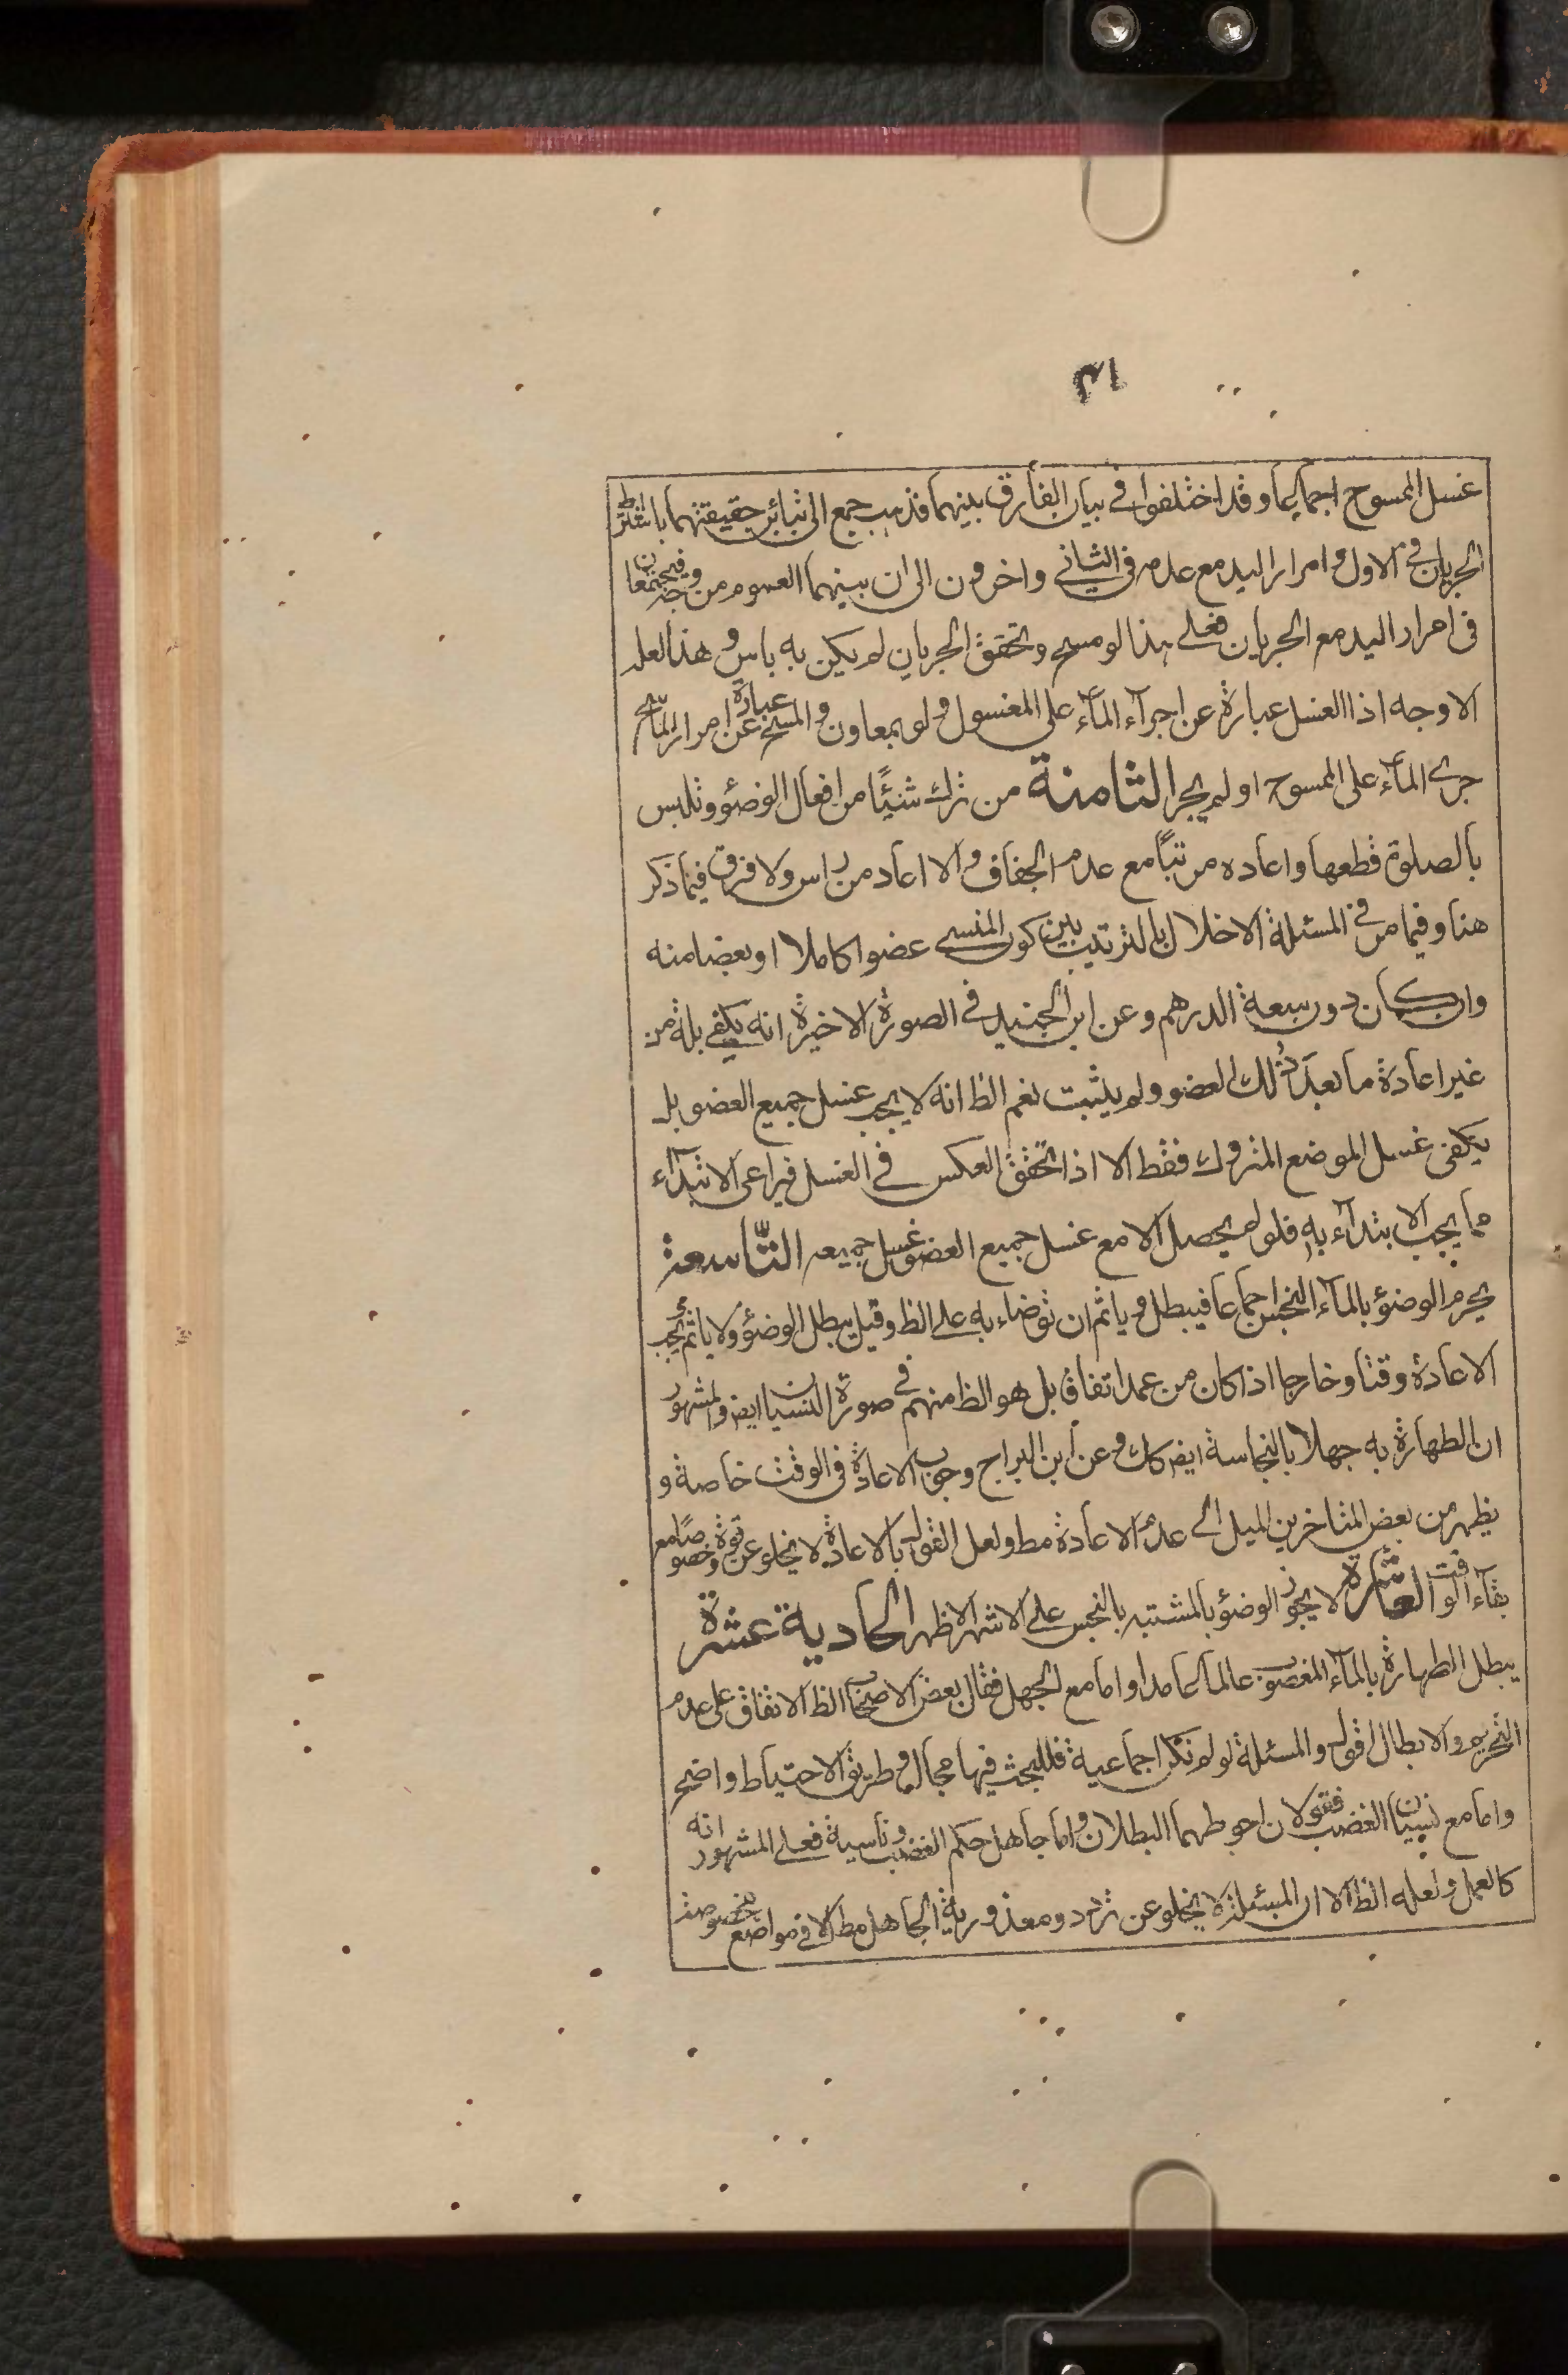 ٣١
غسل الممسوح اجماعا وقد اختلفوا في بيان الفارق بينهما فذهب جمع الى تبائن حقيقتهما باشتراط
الجريان في الاول وامرار اليد مع عدمه في الثاني واخرون الى ان بينهما العموم من وجه فيجتمعان
في امرار اليد مع الجريان فعلى هذا لو مسح وتحقق الجريان لم يكن به باس وهذا لعله
الاوجه اذ الغسل عبارة عن اجرآء المآء على المغسول ولو بمعاون والمسح عبارة عن امرار الماسح
جرى المآء على الممسوح او لم يجر الثامنة من ترك شيئًا من افعال الوضؤ وتلبس
بالصلوة قطعها واعاده مرتبًا مع عدم الجفاف والا اعاد من راس ولا فرق فيما ذكر
هنا وفيما مر في المسئلة الاخلال بالترتيب بين كون المنسي عضوا كاملا او بعضا منه
وان كان دون سعة الدرهم وعن ابن الجنيد في الصورة الاخيرة انه يكفي بله من
غير اعادة ما بعد ذلك العضو ولم يثبت نعم الظ انه لا يجب غسل جميع العضو بل
يكفي غسل الموضع المتروك فقط الا اذا تحقق العكس في الغسل فيراعى الابتدآء
مما يجب الابتدآء به فلو لم يحصل الا مع غسل جميع العضو غسل جميعه التّاسعة
يحرم الوضؤ بالمآء النجس اجماعا فيبطل وياثم ان توضاء به على الظ وقيل يبطل الوضؤ ولا ياثم ويجب
الاعادة وقتا وخارجا اذا كان من عمد اتفاقا بل هو الظ منهم في صورة النسيان ايض والمشهور
ان الطهارة به جهلا بالنجاسة ايض كك وعن ابن البراج وجوب الاعادة في الوقت خاصة و
يظهر من بعض المتاخرين الميل الى عدم الاعادة مط ولعل القول بالاعادة لا يخلو عن قوة وخصوصًا مع
بقآء الوقت العاشرة لا يجوز الوضؤ بالمشتبه بالنجس على الاشهر الاظهر الحادية عشرة
يبطل الطهارة بالمآء المغصوب عالما عامدا واما مع الجهل فقال بعض الاصحاب الظ الاتفاق على عدم
التحريم والابطال اقول والمسئلة لو لم تكن اجماعية فللبحث فيها مجال وطريق الاحتياط واضح
واما مع نسيان الغضب فقولان احوطهما البطلان واما جاهل حكم الغضب وناسية فعلى المشهور انه
كالعمل ولعله الظ الا ان المسئلة لا يخلو عن تردد ومعذورية الجاهل مط الا في مواضع مخصوصة